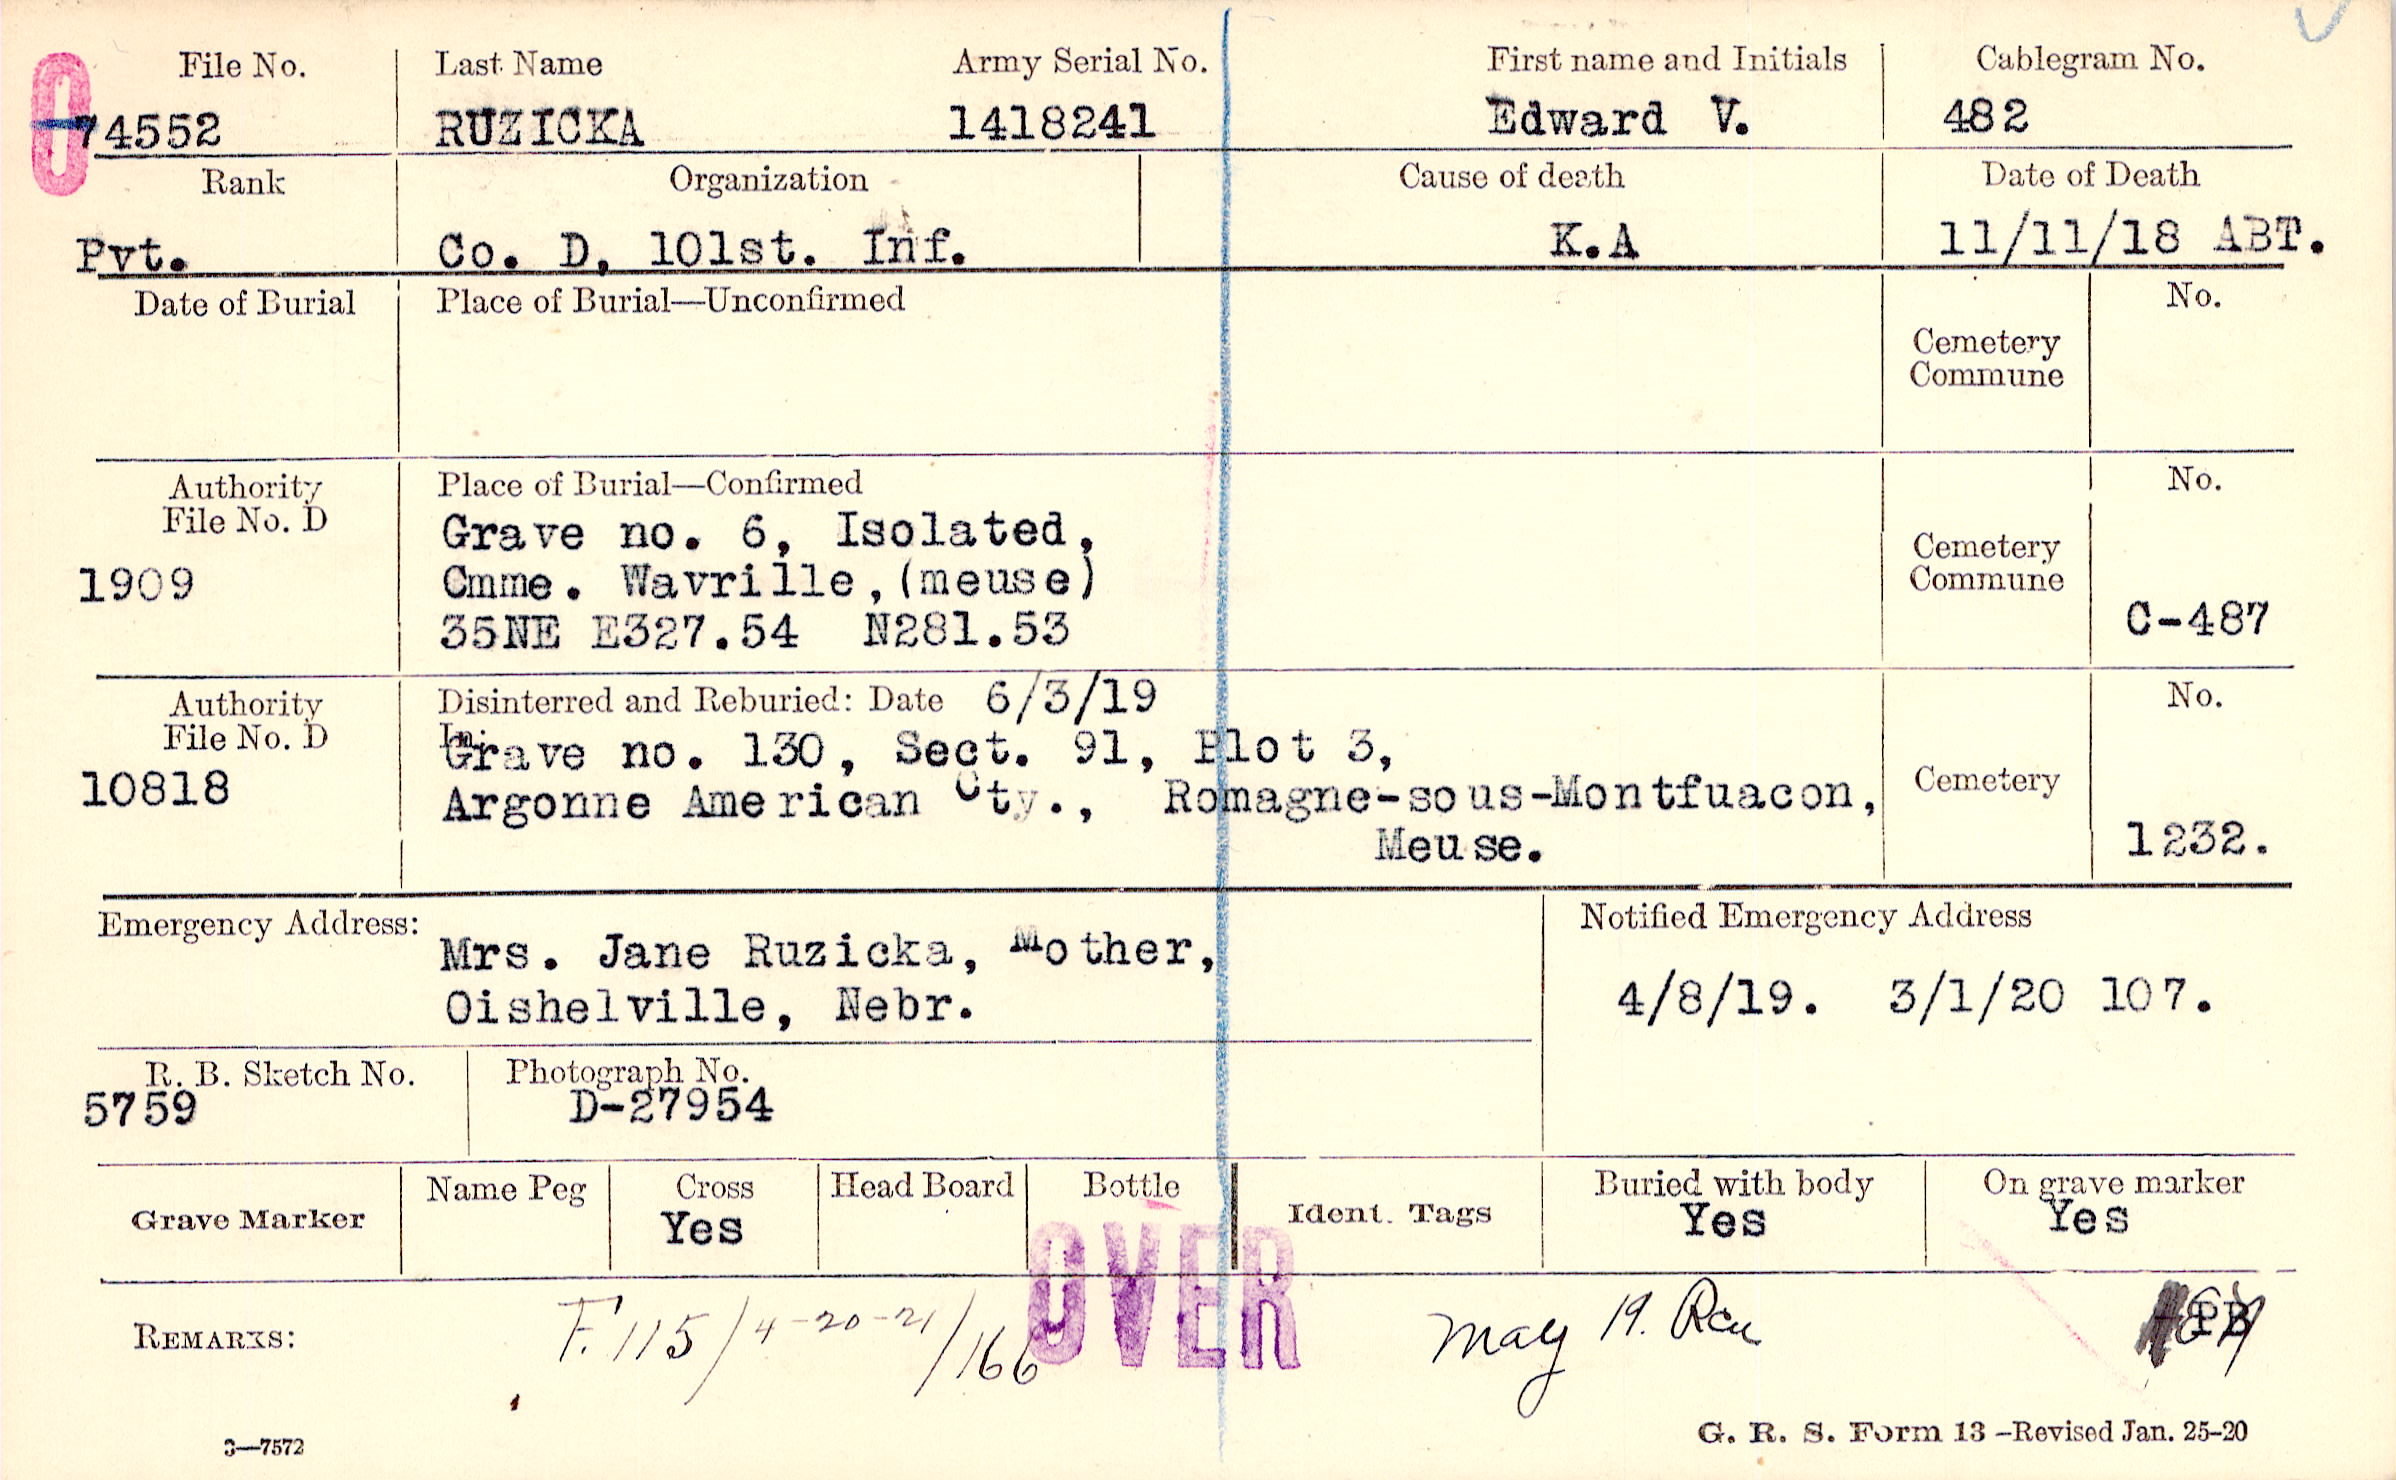 File No. Last Name Army Serial No. First name and Initials Cablegram No.
74552 RUZICKA 1418241 Edward V. 482
Rank Organization Cause of death Date of Death
Pvt. Co. D, 101st. Inf. K.A 11/11/18 ABT.
Date of Burial Place of Burial—Unconfirmed No.
Cemetery
Commune
Authority Place of Burial—Confirmed No.
File No. D Grave no. 6, Isolated,
Cemetery
1909 Cmme. Wavrille,(meuse) Commune
35NE E327.54 N281.53 C-487
Authority Disinterred and Reburied: Date 6/3/19 No.
File No. D In:
Grave no. 130, Sect. 91, Plot 3,
10818 Argonne American Cty., Romagne-sous-Montfuacon, Cemetery
Meuse. 1232.
Emergency Address: Notified Emergency Address
Mrs. Jane Ruzicka, Mother,
Oishelville, Nebr. 4/8/19. 3/1/20 107.
R. B. Sketch No. Photograph No.
5759 D-27954
Grave Marker Name Peg Cross Head Board Bottle Ident. Tags Buried with body On grave marker
Yes Yes Yes
OVER
REMARKS: F.115/4-20-21/166 May 19.
3—7572 G. R. S. Form 13 –Revised Jan. 25-20